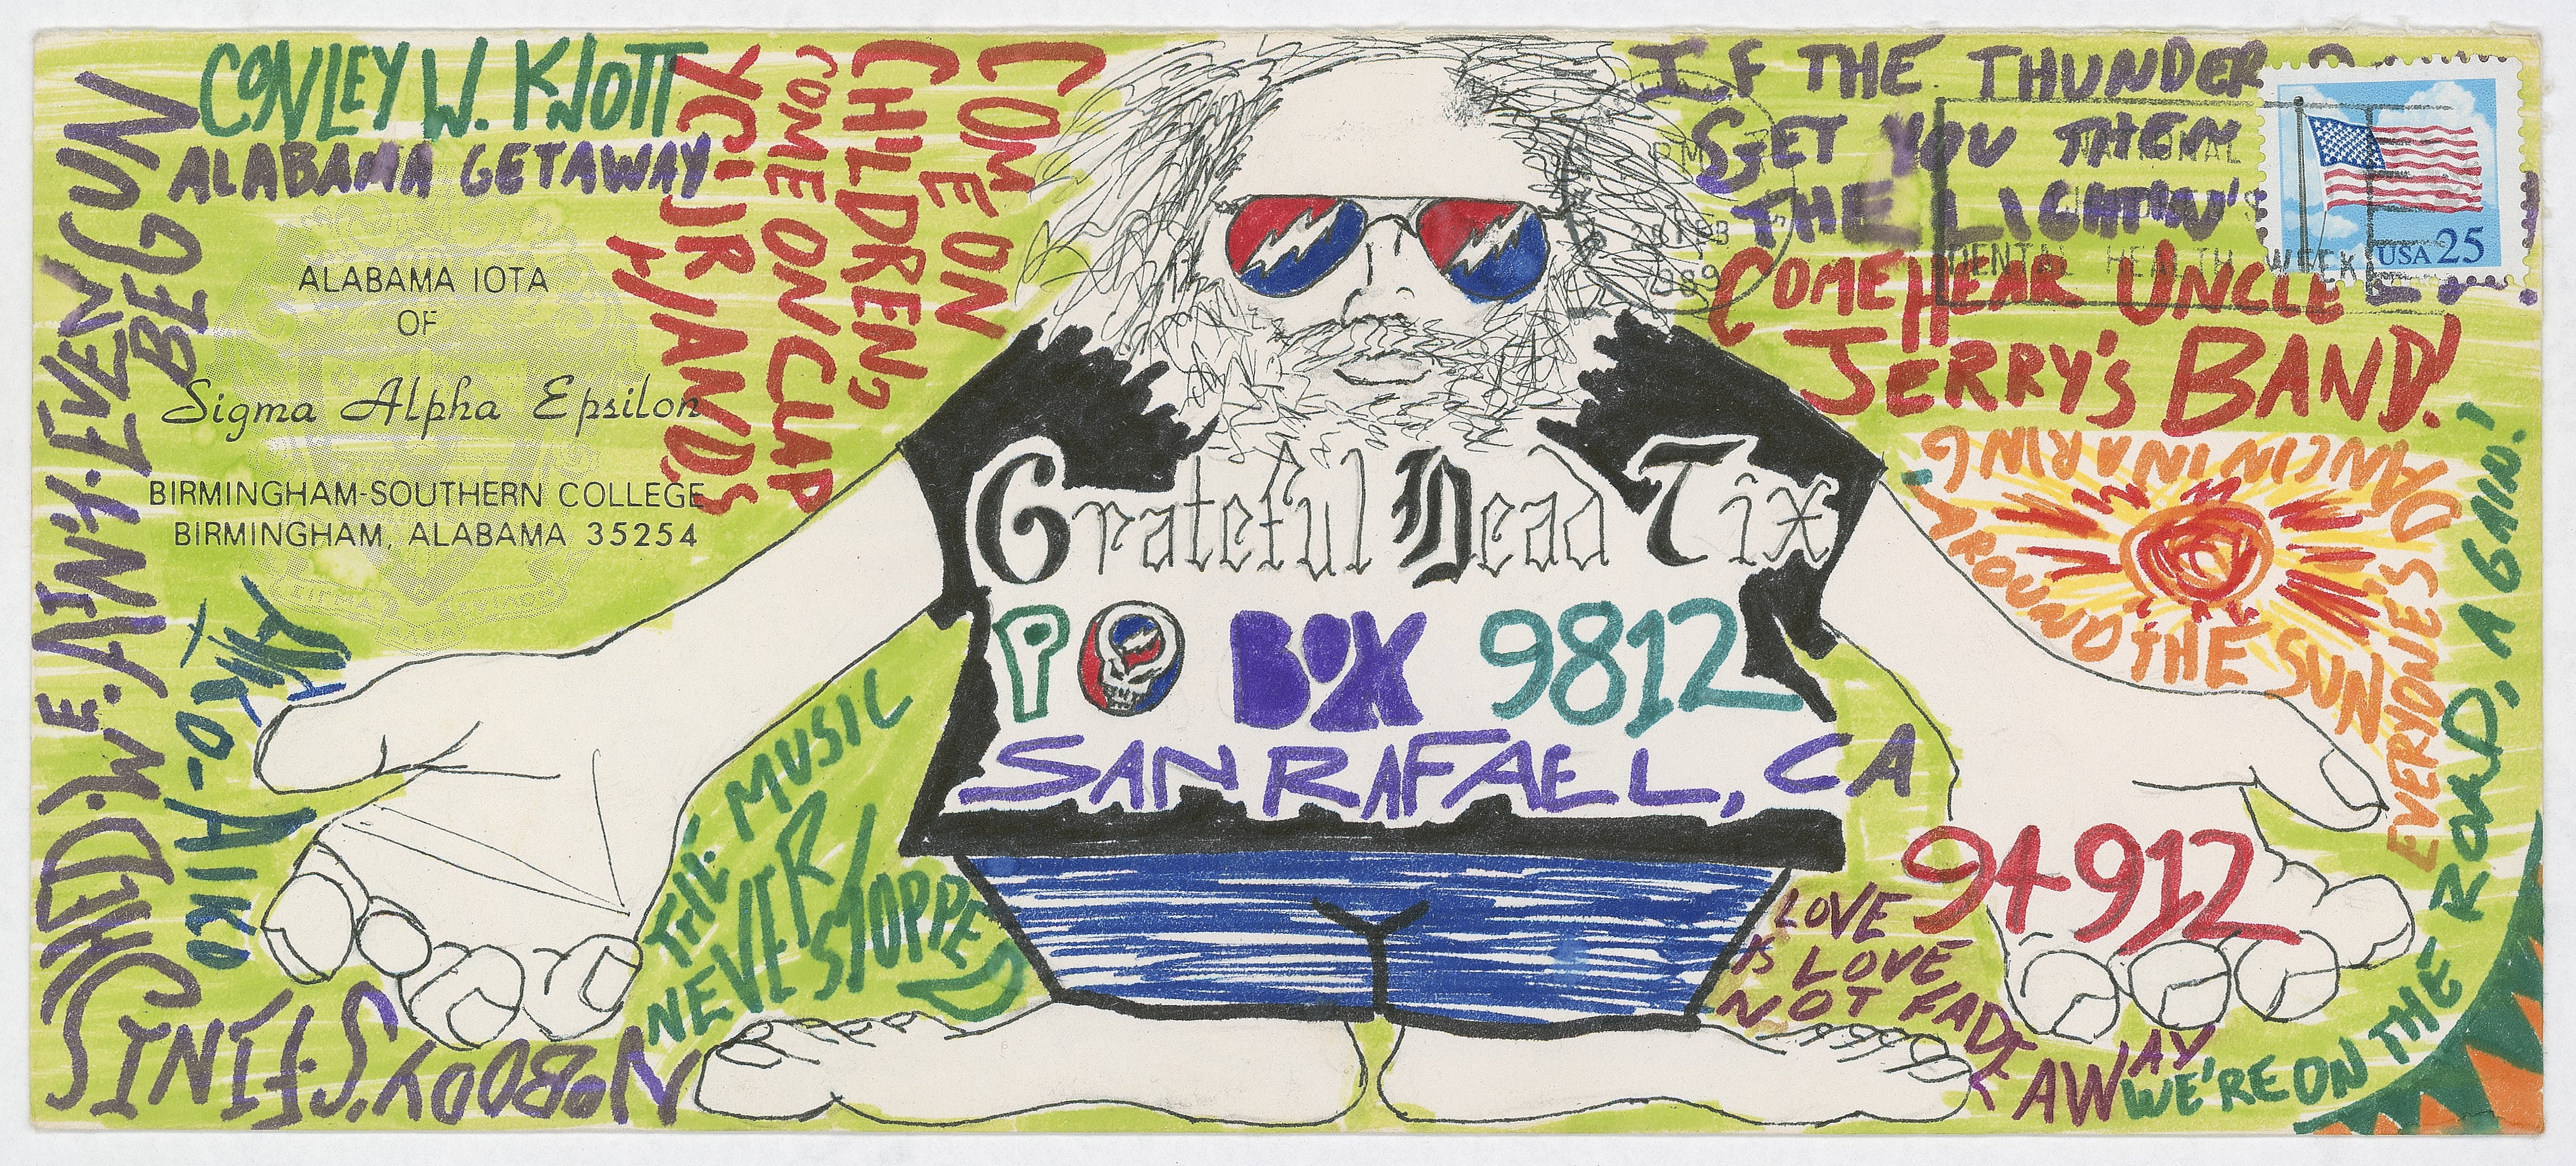 CONLEY W. KNOTT
ALABAMA GETAWAY
ALABAMA IOTA
OF
Sigma Alpha Epsilon
BIRMINGHAM-SOUTHERN COLLEGE
BIRMINGHAM, ALABAMA 35254
NOBODY'S FINISHED. WE. AIN'T. EVEN BEGUN
AIKO-AIKO
COME ON
CHILDREN,
COME ON CLAP
YOUR HANDS
THE MUSIC
NEVER
STOPPED
IF THE THUNDER
GET YOU THEN
THE LIGHTNIN'S
COME HEAR UNCLE
JERRY'S BAND!
PM
1989
NATIONAL
DENTAL HEALTH WEEK
USA 25
Grateful Dead Tix
PO BOX 9812
SAN RAFAEL, CA
94912
EVERYONE'S DANCIN IN A RING AROUND THE SUN
LOVE
IS LOVE
NOT FADE AWAY
WE'RE ON THE ROAD, AGAIN!